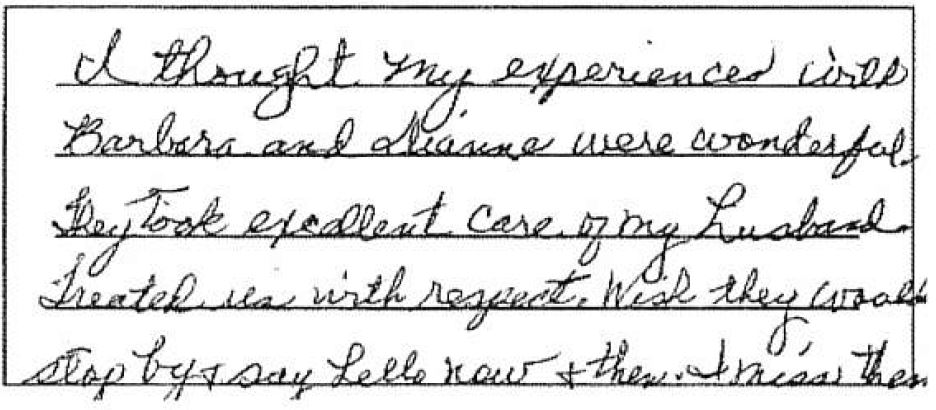 I thought my experiences with
Barbara and Dianne were wonderful.
They took excellent care of my husband.
Treated us with respect. Wish they would
stop by & say hello now & then. I miss them